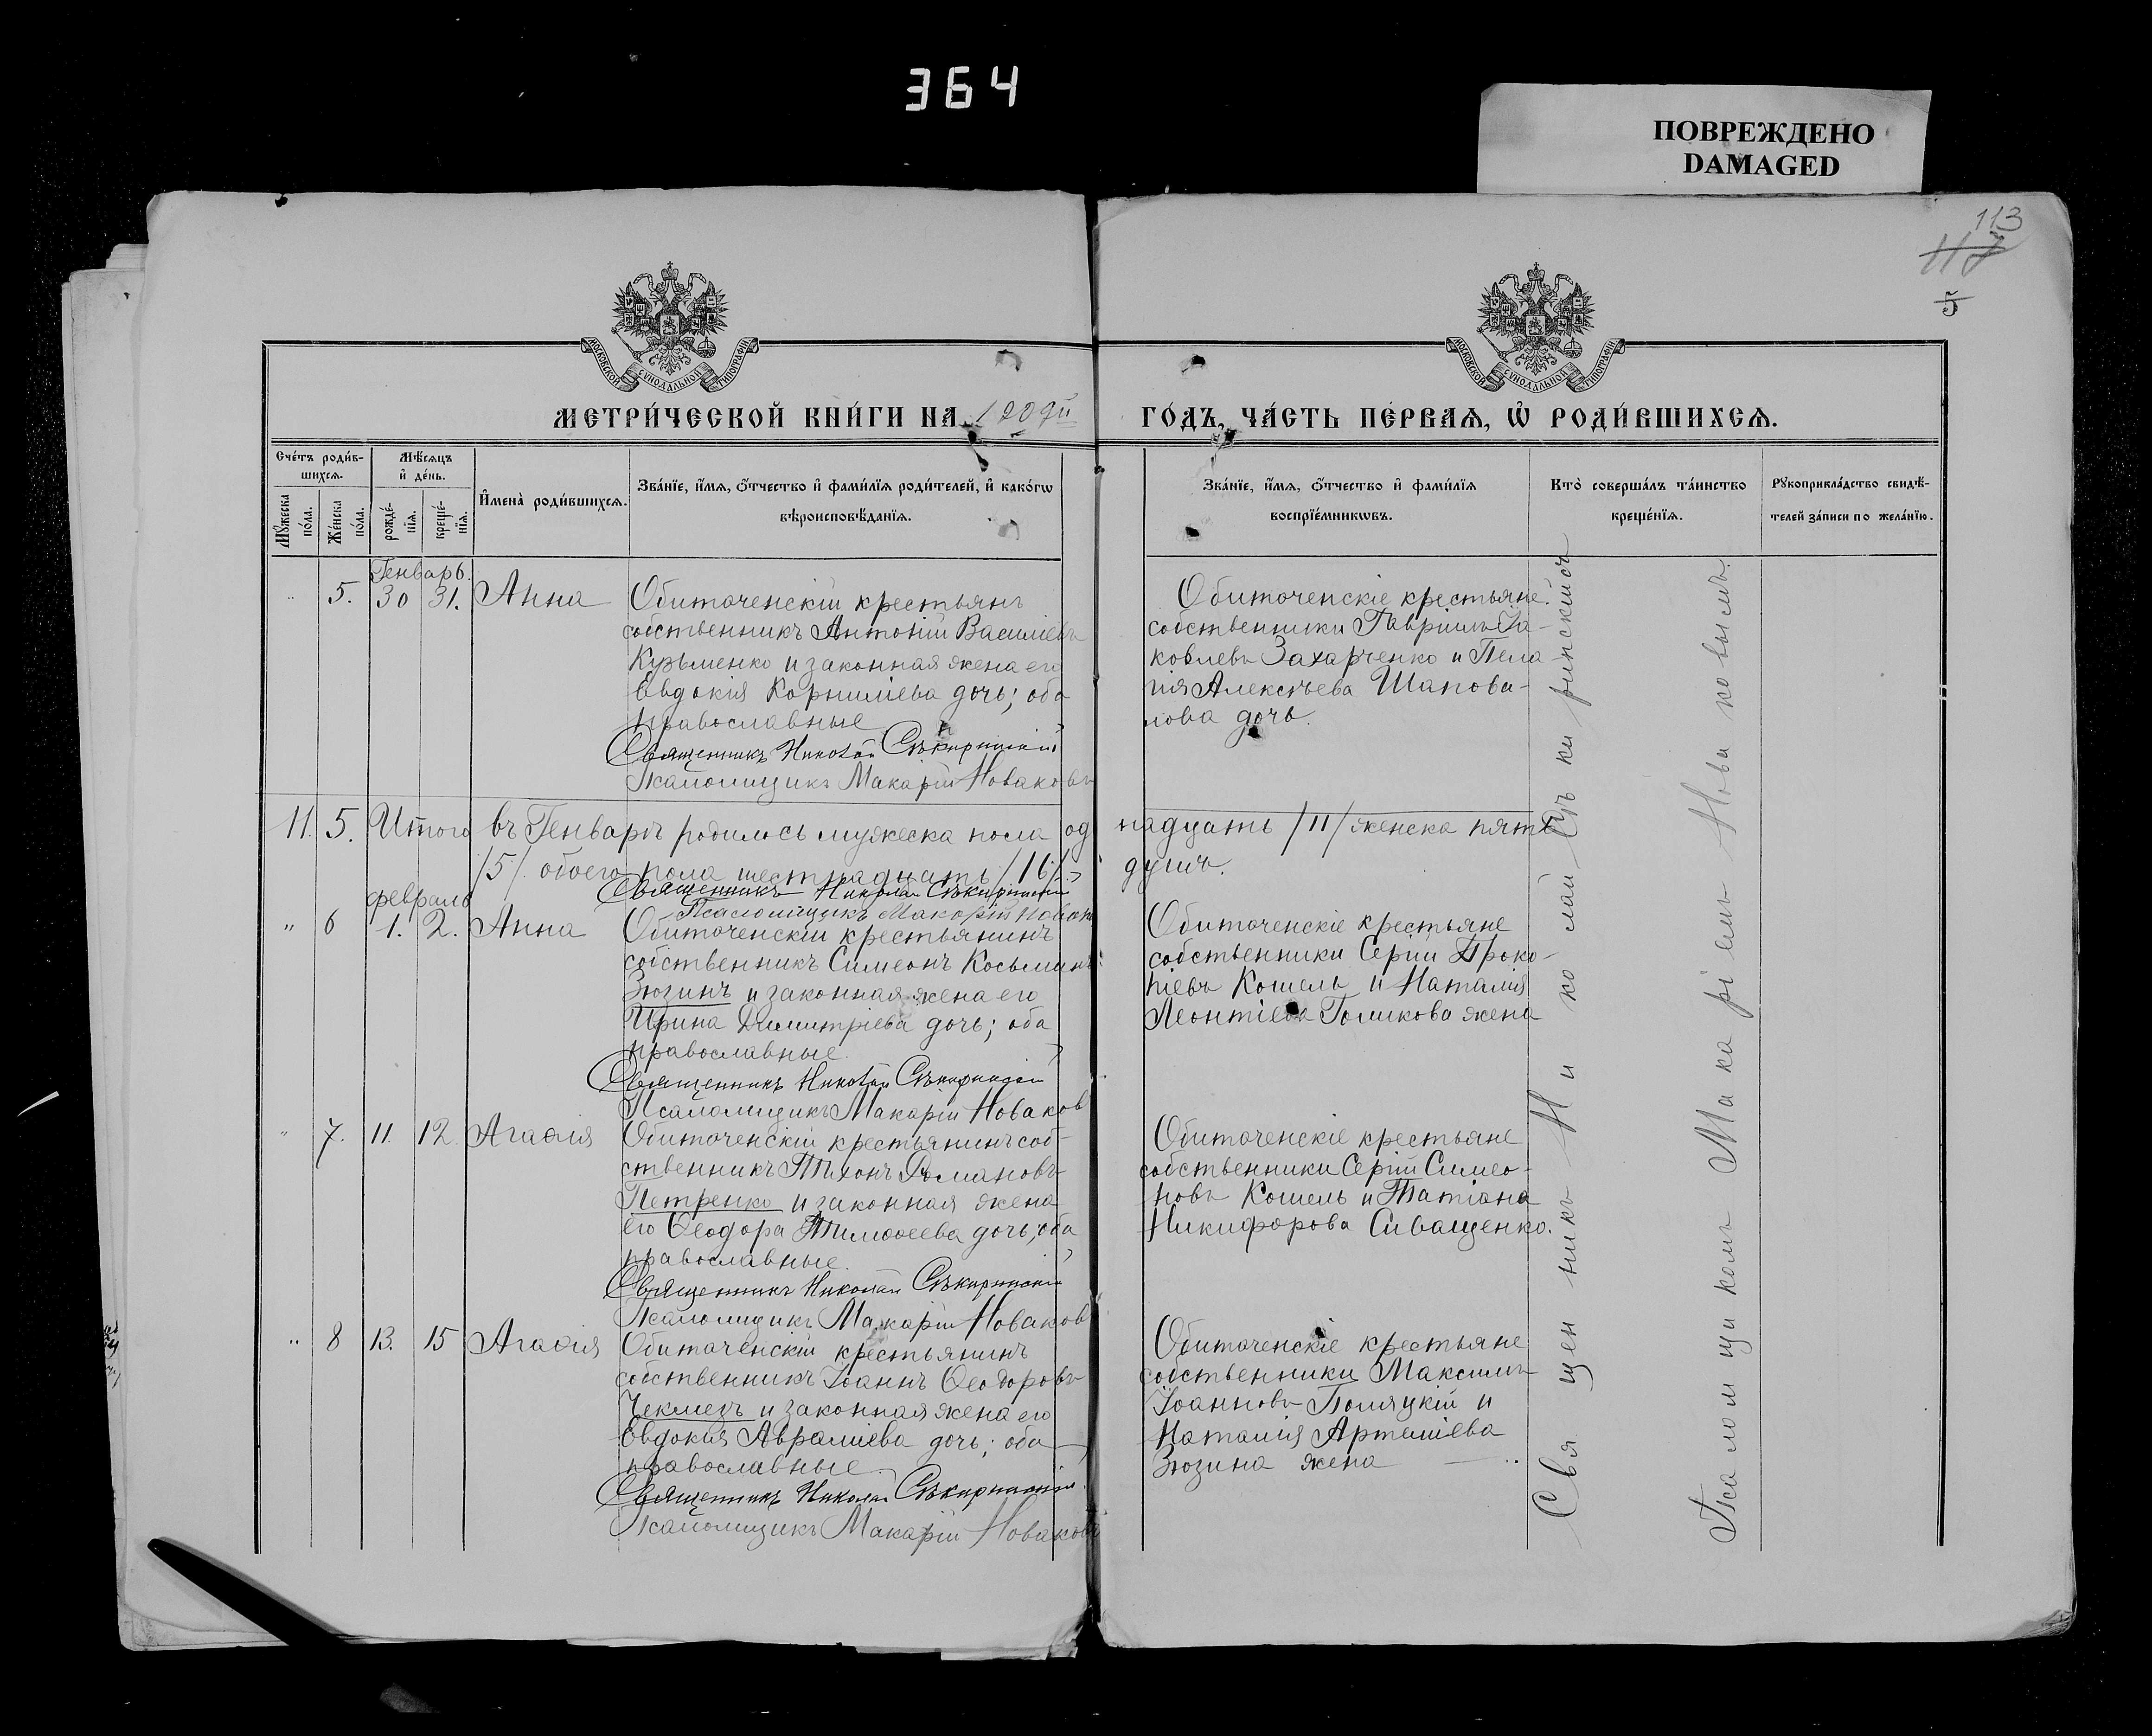 364
ПОВРЕЖДЕНО
DAMAGED
113
5
МОСКОВСКОЙ СѴНОДАЛЬНОЙ ТИПОГРАФІИ
МОСКОВСКОЙ СѴНОДАЛЬНОЙ ТИПОГРАФІИ
МЕТРИ́ЧЕСКОЙ КНИ́ГИ НА
ГО́ДЪ, ЧА́СТЬ ПЕ́РВАѦ, Ѡ҆ РОДИ́ВШИХСѦ.
Сче́тъ роди́в-
шихсѧ.
Мꙋ́жеска по́ла.
Же́нска по́ла.
Мѣ́сѧцъ
и҆ де́нь.
рожде́-нїѧ.
креще́-нїѧ.
И҆мена̀ роди́вшихсѧ.
Зва́нїе, и҆́мѧ, ѻ҆́тчество и҆ фами́лїѧ роди́телей, и҆ како́гѡ
вѣроисповѣ́данїѧ.
Зва́нїе, и҆́мѧ, ѻ҆́тчество и҆ фами́лїѧ
воспрїе́мникѡвъ.
Кто̀ соверша́лъ та́инство
креще́нїѧ.
Рꙋкоприкла́дство свидѣ́-
телей за́писи по жела́нїю.
Генварь.
5. 30 31. Анна
Обиточенскій крестьянъ
собственникъ Антоній Василіевъ
Кузьменко и законная жена его
Евдокія Корниліева дочь; оба
православные
Священникъ Николай Сѣкиринскій
Псаломщикъ Макарій Новаковъ
Обиточенскіе крестьяне.
собственники Гавріилъ Іа-
ковлевъ Захарченко и Пела-
гія Алексѣева Шапова-
лова дочь.
11. 5. Итого въ Генварѣ родилось мужеска пола од надцать /11/ женска пять
/5/. обоего пола шестнадцать /16/. душъ.
Священникъ Николай Сѣкиринскій
Псаломщикъ Макарій Новак
февраль
" 6 1. 2. Анна
Обиточенскій крестьянинъ
собственникъ Симеонъ Косьминъ
Зюзинъ и законная жена его
Ирина Димитріева дочь; оба
православные.
Священникъ Николай Сѣкиринскій
Псаломщикъ Макарій Новаков
Обиточенскіе крестьяне
собственники Сергій Проко-
піевъ Кошель и Наталія
Леонтіева Голикова жена
" 7. 11. 12. Агаѳія
Обиточенскій крестьянинъ соб-
ственникъ Тихонъ Романовъ
Петренко и законная жена
его Ѳеодора Тимоѳеева дочь; оба
православные.
Священникъ Николай Сѣкиринскій
Псаломщикъ Макарій Новаков
Обиточенскіе крестьяне
собственники Сергій Симео-
новъ Кошель и Татіана
Никифорова Сиващенко.
" 8 13. 15 Агаѳія
Обиточенскій крестьянинъ
собственникъ Іоаннъ Ѳеодоровъ
Чекмезъ и законная жена его
Евдокія Авраміева дочь; оба
православные.
Священникъ Николай Сѣкиринскій
Псаломщикъ Макарій Новаковъ
Обиточенскіе крестьяне
собственники Максимъ
Іоанновъ Поляцкій и
Наталія Артеміева
Зюзина жена
Священникъ Николай Сѣкиринскій съ
Псаломщикомъ Макаріемъ Новаковымъ.